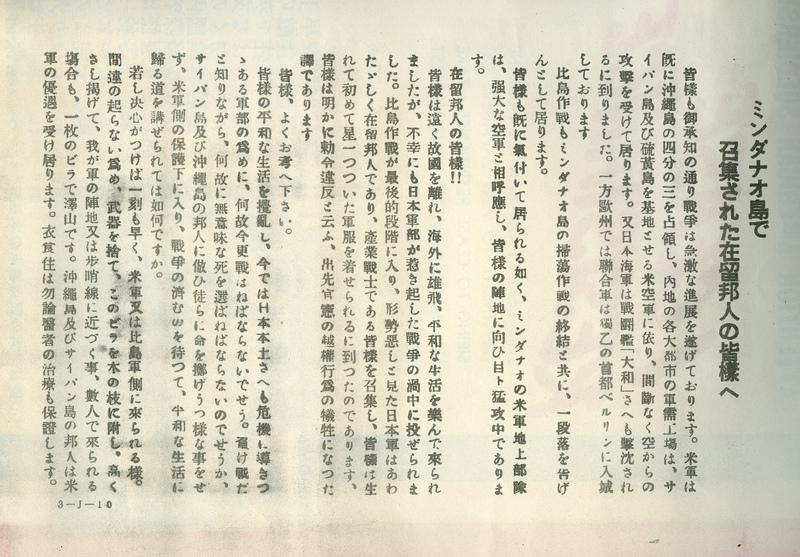 ミンダナオ島で
召集された在留邦人の皆樣へ
皆樣も御承知の通り戰爭は急激な進展を遂げております。米軍は
旣に沖繩島の四分の三を占領し、内地の各大都市の軍需工場は、サ
イパン島及び硫黃島を基地とせる米空軍に依り、間斷なく空からの
攻擊を受けて居ります。又日本海軍は戰鬪艦「大和」さへも擊沈され
るに到りました。一方歐州では聯合軍は獨乙の首都ベルリンに入城
しております
比島作戰もミンダナオ島の掃蕩作戰の終結と共に、一段落を告げ
んとして居ります。
皆樣も旣に氣付いて居られる如く、ミンダナオの米軍地上部隊
は、强大な空軍と相呼應し、皆樣の陣地に向ひ目下猛攻中でありま
す。
在留邦人の皆樣!!
皆樣は遠く故國を離れ、海外に雄飛、平和な生活を樂んで來られ
ましたが、不幸にも日本軍部が惹き起した戰爭の渦中に投ぜられま
した。比島作戰が最後的段階に入り、形勢惡しと見た日本軍はあわ
たゞしく在留邦人であり、產業戰士である皆樣を召集し、皆樣は生
れて初めて星一つついた軍服を着せられるに到つたのであります、
皆樣は明かに勅令違反と云ふ、出先官憲の越權行爲の犧牲になつた
譯であります
皆樣、よくお考へ下さい。
皆樣の平和な生活を攪亂し、今では日本本土さへも危機に導きつ
ゝある軍部の爲めに、何故今更戰はねばならないでせう。負け戰だ
と知りながら、何故に無意味な死を選ばねばならないのでせうか、
サイパン島及び沖繩島の邦人に倣ひ徒らに命を擲げうつ樣な事をせ
ず、米軍側の保護下に入り、戰爭の濟むのを待つて、平和な生活に
歸る道を講ぜられては如何ですか。
若し決心がつけば一刻も早く、米軍又は比島軍側に來られる樣。
間違の起らない爲め、武器を捨て、このビラを木の枝に附し、高く
さし揭げて、我が軍の陣地又は步哨線に近づく事、數人で來られる
場合も、一枚のビラで澤山です。沖繩島及びサイパン島の邦人は米
軍の優遇を受け居ります。衣食住は勿論醫者の治療も保證します。
3-J-10